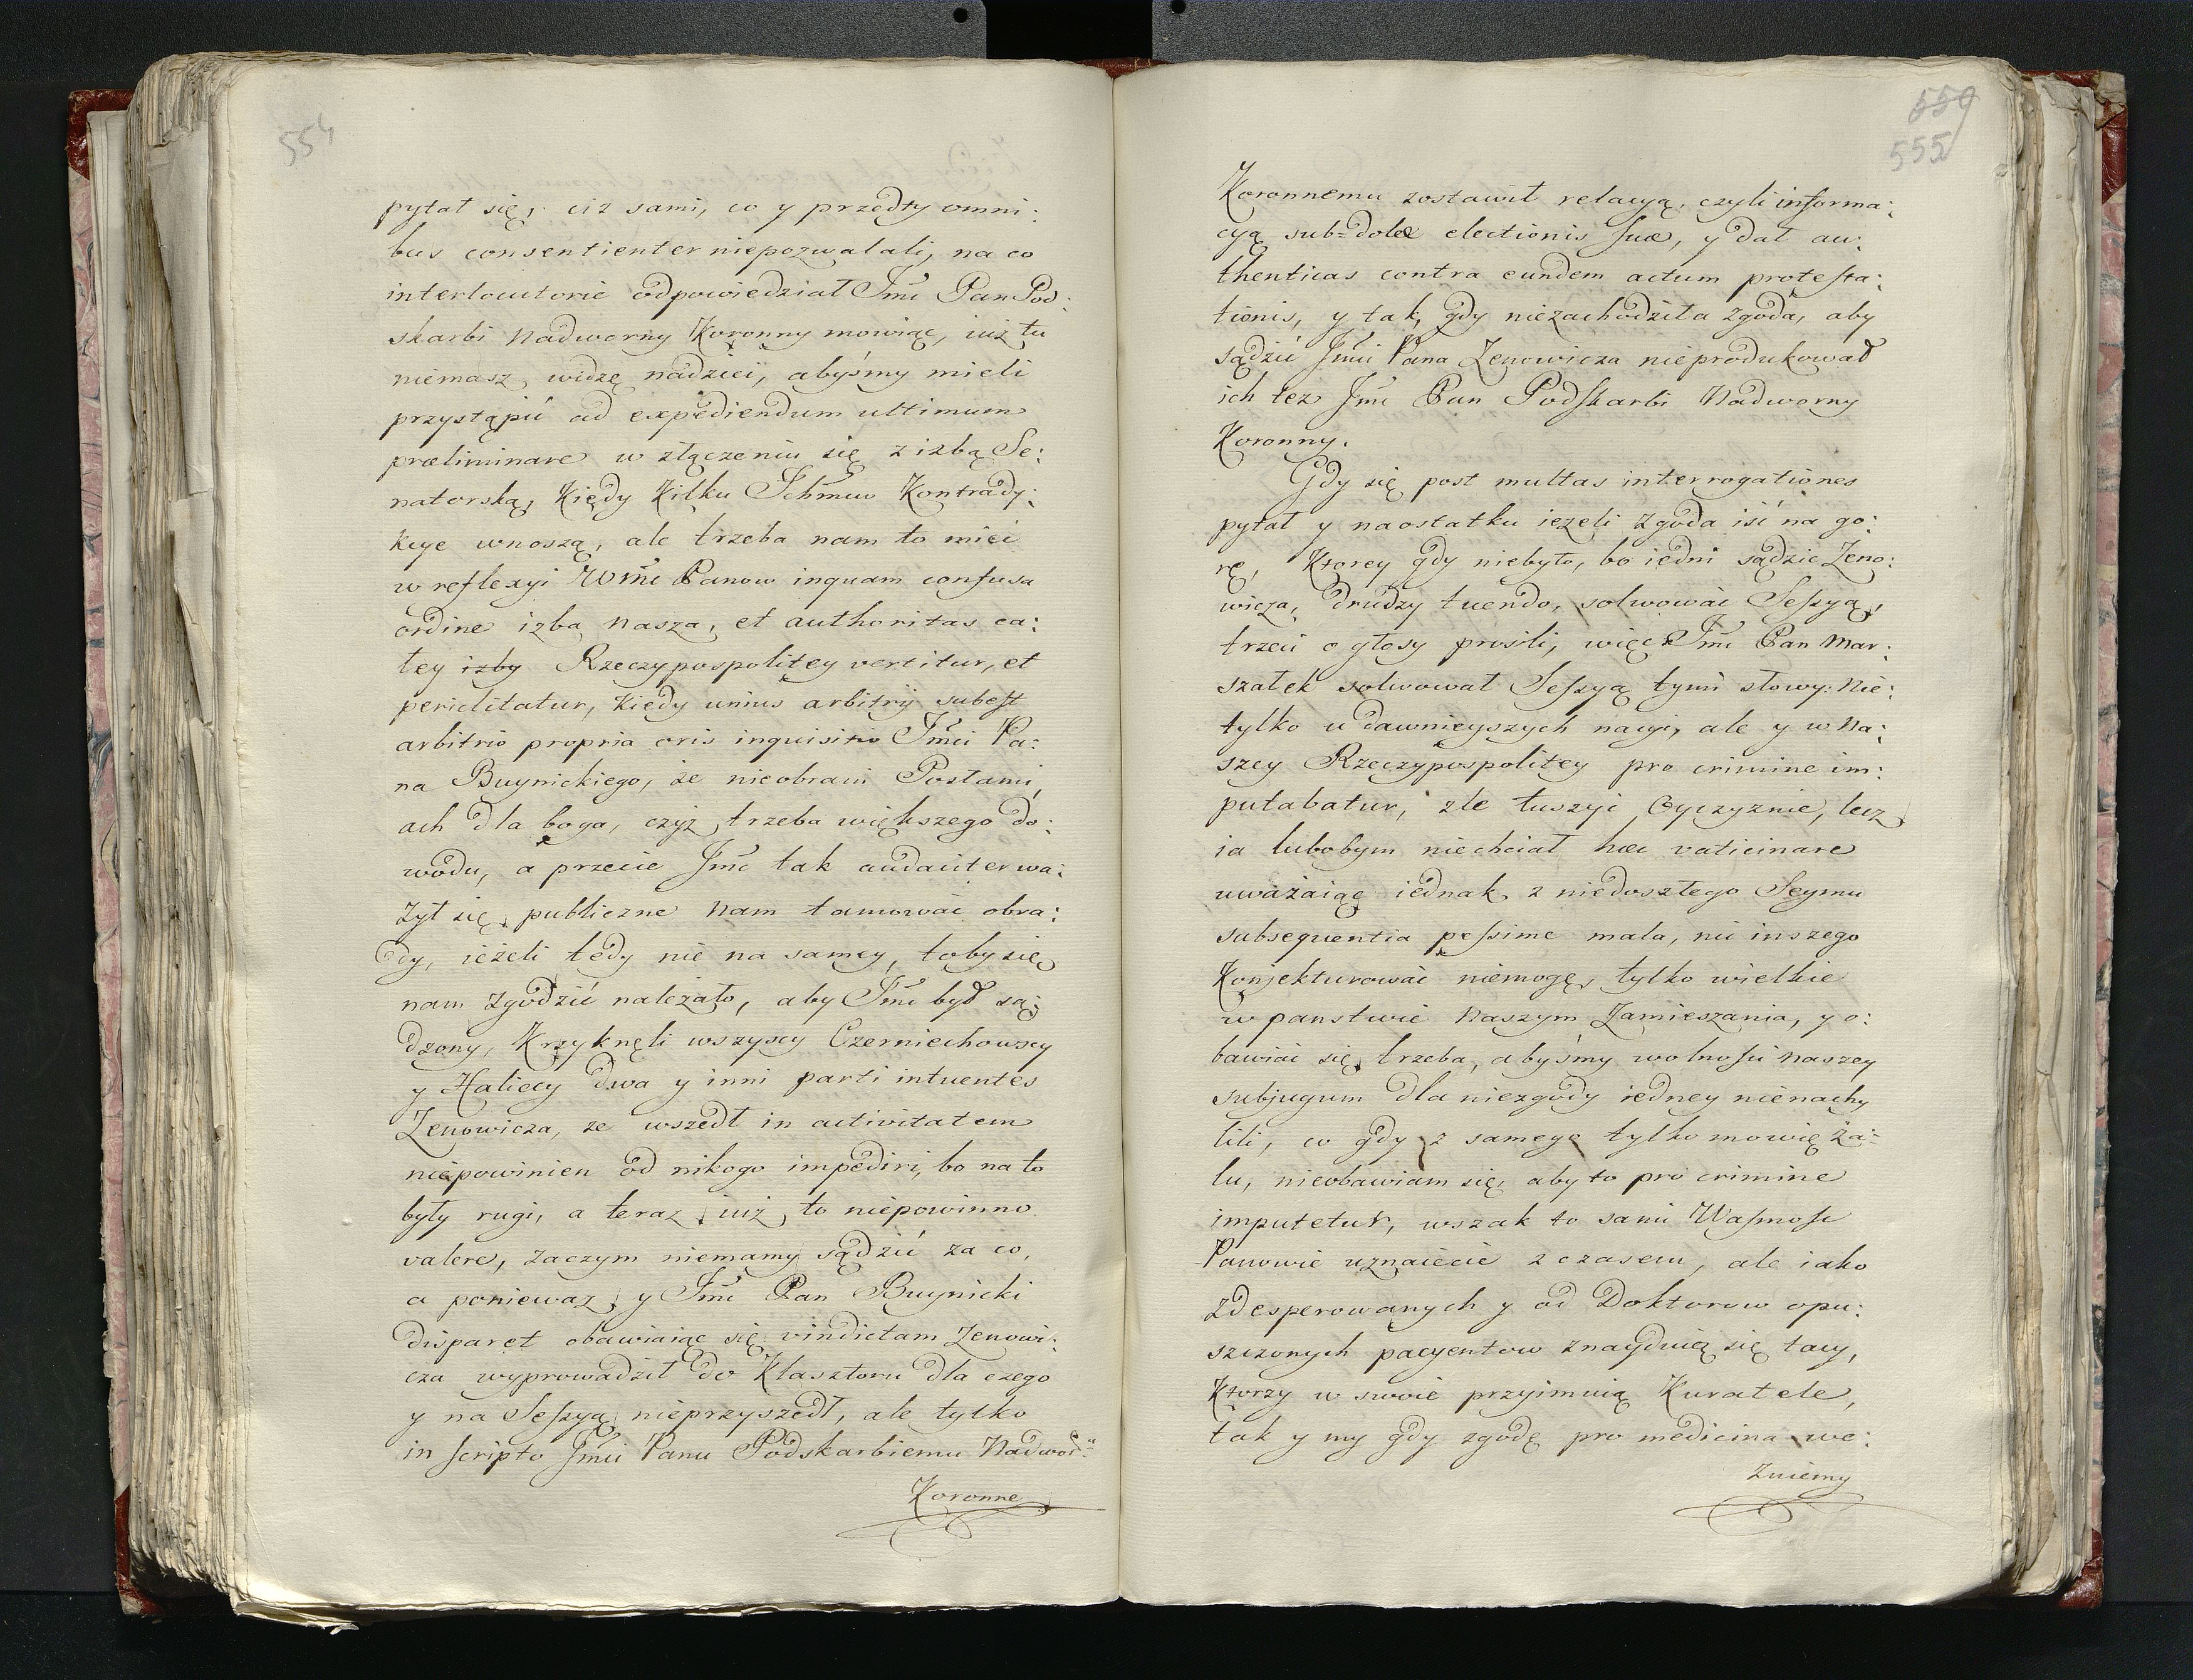 554
pytał się, ciż sami, co y przedty omni:
bus consentienter niepozwalali, na co
interlocutorie odpowiedział Jmć Pan Pod:
skarbi Nadworny Koronny mowiąc, iuż tu
niemasz, widzę nadziei, abyśmy mieli
przystąpić ad expediendum ultimum
præliminare w złączeniu się z izbą Se:
natorską, kiedy kilku Ichmciow kontrady:
kcye wnoszą, ale trzeba nam to mieć
w reflexyi WMć Panow inquam confusa
ordine izba nasza, et authoritas ca:
łey izby Rzeczypospolitey vertitur, et
periclitatur, kiedy unius arbitrij subest
arbitrio propria oris inquisitio Jmci Pa:
na Buynickiego, że nieobrani Posłami,
ach dla boga, czyż trzeba większego do:
wodu, a przecie Jmć tak audaciter wa:
żył się publiczne nam tamować obra:
dy, ieżeli tedy nie na samey, toby się
nam zgodzić należało, aby Jmć był są:
dzony, Krzyknęli wszyscy Czerniechowscy
y Haliccy dwa y inni parti intuentes
Zenowicza, ze wszedł in activitatem
niepowinien od nikogo impediri, bo na to
były rugi, a teraz iuż to niepowinno
valere, zaczym niemamy sądzić za co,
a poniewaz y Jmć Pan Buynicki
disparet obawiaiąc się vindictam Zenowi:
cza wyprowadził do Klasztoru dla czego
y na Sessyą nieprzyszedł, ale tylko
in scripto Jmci Panu Podskarbiemu Nadwor:
Koronne
559
555
Koronnemu zostawił relacyą, czyli informa:
cyą sub=dolæ electionis suæ, y dał au:
thenticas contra eundem actum protesta:
tionis, y tak, gdy niezachodziła zgoda, aby
sądzić Jmci Pana Zenowicza nieprodukował
ich tez Jmć Pan Podskarbi Nadworny
Koronny.
Gdy się post multas interrogationes
pytał y naostatku iezeli zgoda iść na go:
rę, ktorey gdy niebyło, bo iedni sądzic Zeno:
wicza, drudzy tuendo, solwować Sessyą,
trzeci o głosy prosili, więc Jmć Pan Mar:
szałek solwował Sessyą tymi słowy: Nie:
tylko u dawnieyszych nacyi, ale y w Na:
szey Rzeczypospolitey pro crimine im:
putabatur, zle tuszyć Oyczyznie, lecz
ia lubobym niechciał hæc vaticinare
uważaiąc iednak z niedoszłego Seymu
subsequentia pessime mala, nic inszego
Konjekturować niemogę, tylko wielkie
w panstwie Naszym Zamieszania, y o:
bawiać się trzeba, abyśmy wolności naszey
subjugum dla niezgody iedney nienachy
lili, co gdy z samego tylko mowię ża:
lu, nieobawiam się, aby to pro crimine
imputetur, wszak to sami Wasmość
Panowie uznaiecie z czasem, ale iako
zdesperowanych y od Doktorow opu:
szczonych pacyentow znayduią się tacy,
Ktorzy w swoie przyimuią Kuratele,
tak y my gdy zgodę pro medicina we:
zniemy